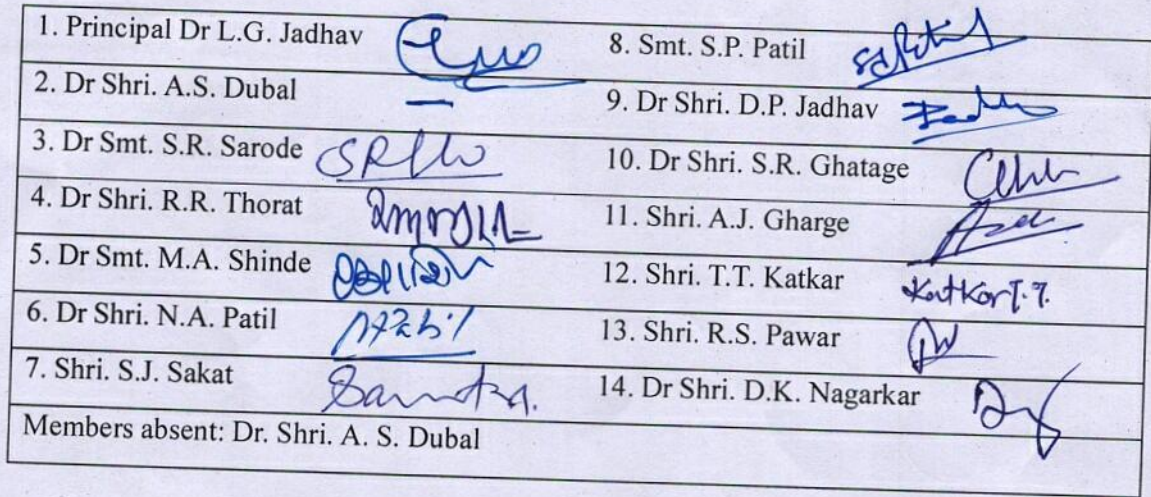 1. Principal Dr L.G. Jadhav
8. Smt. S.P. Patil
2. Dr Shri. A.S. Dubal —
9. Dr Shri. D.P. Jadhav
3. Dr Smt. S.R. Sarode
10. Dr Shri. S.R. Ghatage
4. Dr Shri. R.R. Thorat
11. Shri. A.J. Gharge
5. Dr Smt. M.A. Shinde
12. Shri. T.T. Katkar Katkar T.T.
6. Dr Shri. N.A. Patil
13. Shri. R.S. Pawar
7. Shri. S.J. Sakat
14. Dr Shri. D.K. Nagarkar
Members absent: Dr. Shri. A. S. Dubal